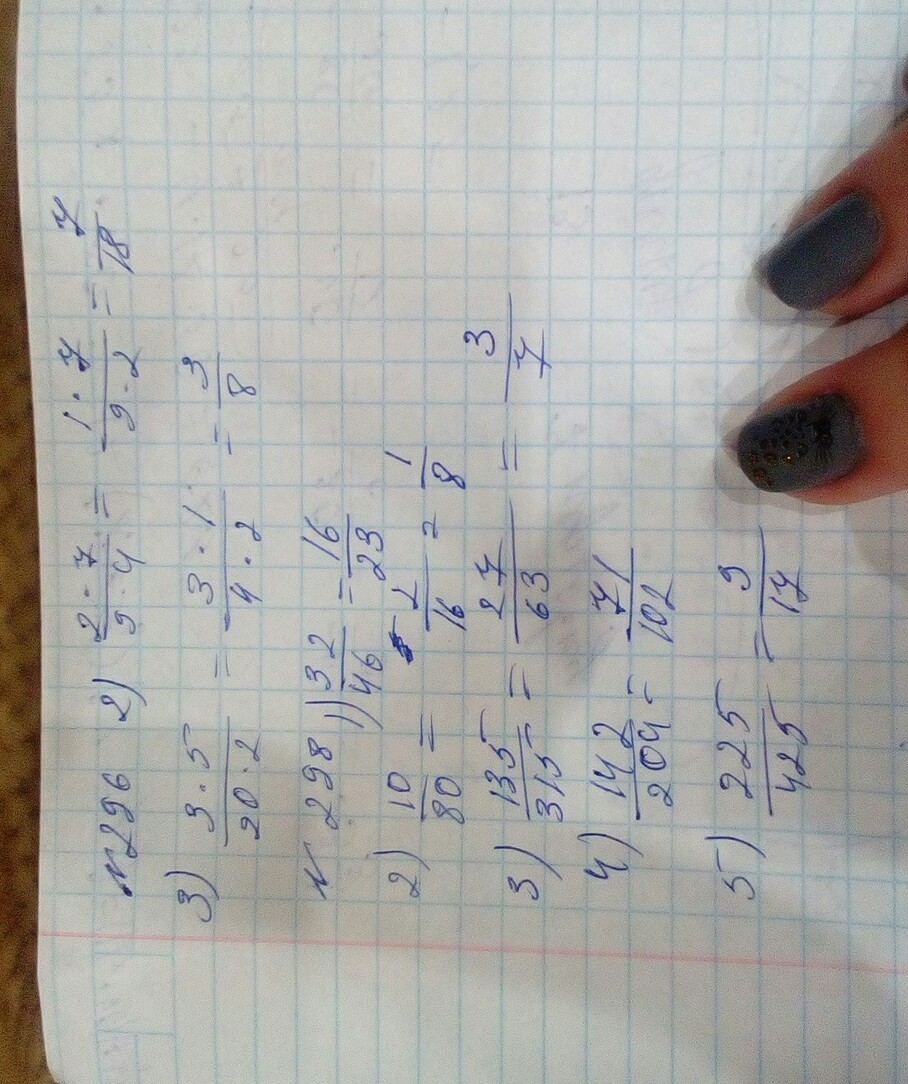 №296 2) 2·7/9·4 = 1·7/9·2 = 7/18
3) 3·5/20·2 = 3·1/4·2 = 3/8
№298 1) 32/46 = 16/23
2) 10/80 = 2/16 = 1/8
3) 135/315 = 27/63 = 3/7
4) 142/204 = 71/102
5) 225/425 = 9/17